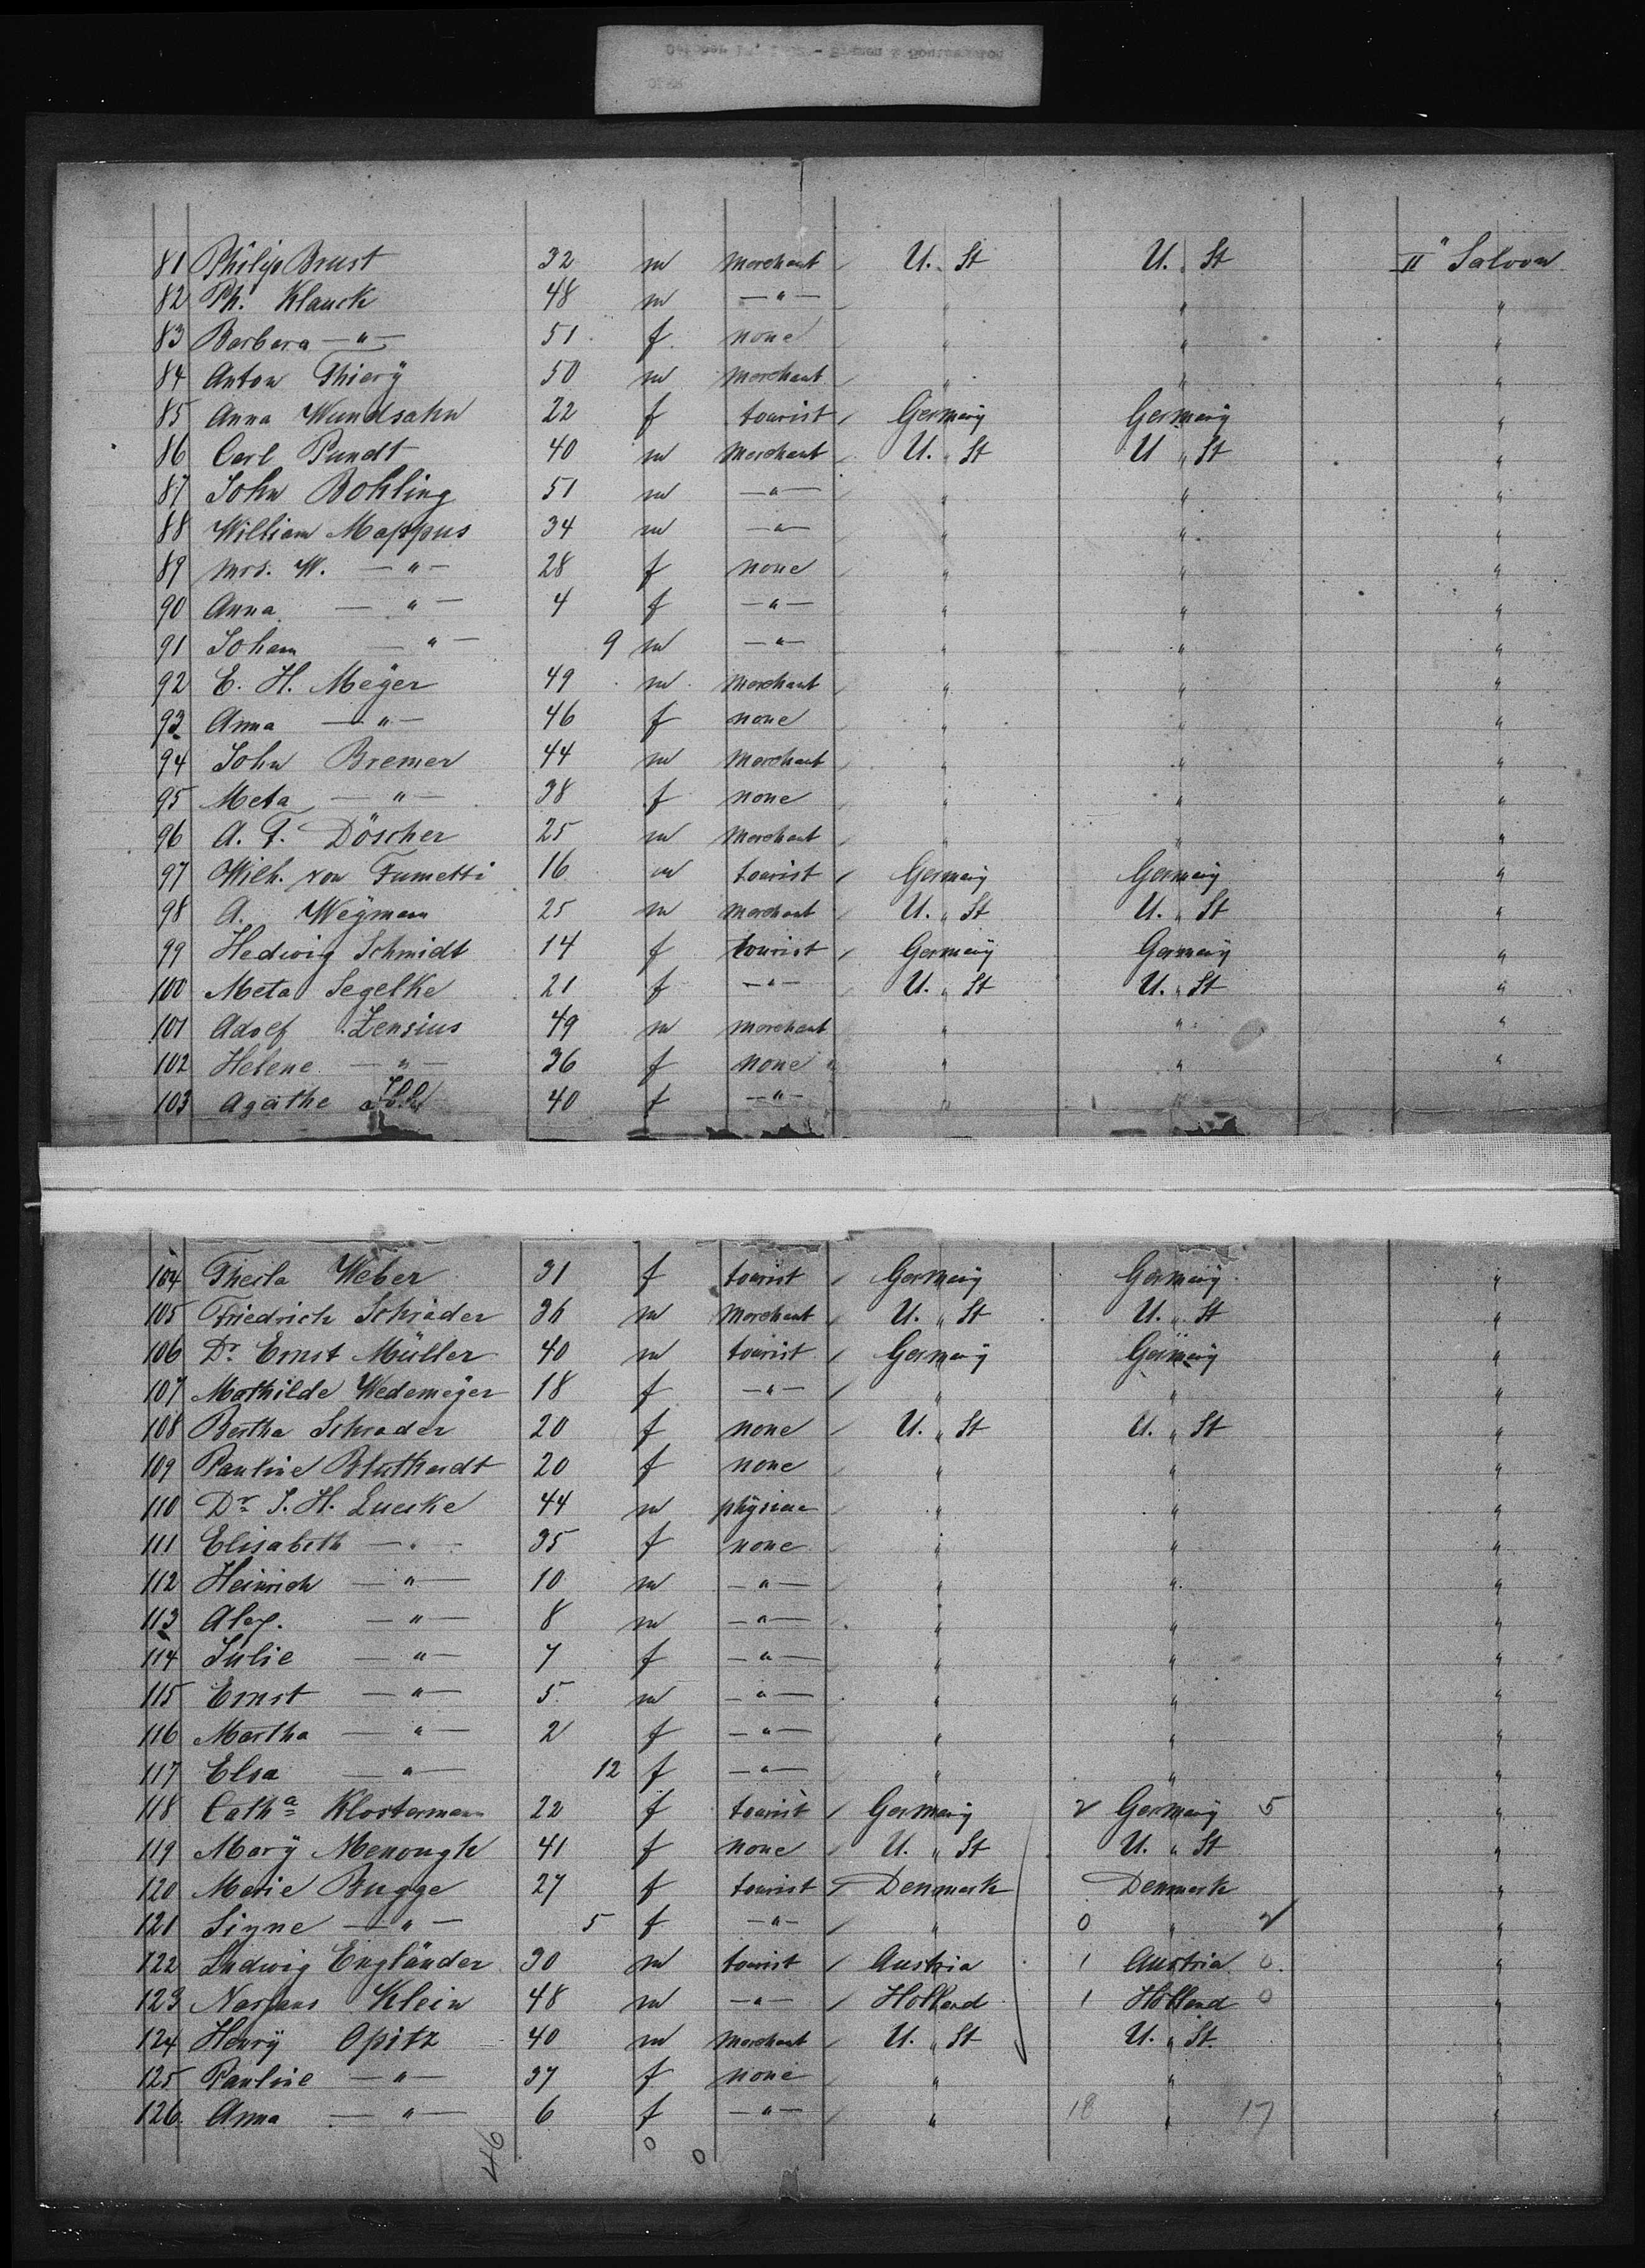 81 Philip Brust 32 m Merchant U. St U. St II" Saloon
82 Ph. Klauck 48 m —"— " " "
83 Barbara —"— 51 f none " " "
84 Anton Thierÿ 50 m Merchant " " "
85 Anna Wundsahn 22 f tourist Germanÿ Germanÿ "
86 Carl Pundt 40 m Merchant U. " St U " St "
87 John Bohling 51 m —"— " " "
88 William Mappus 34 m —"— " " "
89 Mrs. W. —"— 28 f none " " "
90 Anna —"— 4 f —"— " " "
91 Johann —"— 9 m —"— " " "
92 E. H. Meÿer 49 m Merchant " " "
93 Anna —"— 46 f none " " "
94 John Bremer 44 m Merchant " " "
95 Meta —"— 38 f none " " "
96 A. F. Döscher 25 m Merchant " " "
97 Wilh. von Fumetti 16 m tourist Germanÿ Germanÿ "
98 A. Weÿmann 25 m Merchant U. " St U. " St "
99 Hedwig Schmidt 14 f tourist Germanÿ Germanÿ "
100 Meta Segelke 21 f —"— U. " St U. " St "
101 Adolf Zensius 49 m Merchant " " "
102 Helene —"— 36 f none " " "
103 Agathe 40 f —"— " "
104 Thecla Weber 31 f tourist Germanÿ Germanÿ "
105 Friedrich Schräder 36 m Merchant U. " St U. " St "
106 Dr. Ernst Müller 40 m tourist Germanÿ Germanÿ "
107 Mathilde Wedemeÿer 18 f —"— " " "
108 Bertha Schrader 20 f none U. " St U. " St "
109 Pauline Bluthardt 20 f none " " "
110 Dr. J. H. Luecke 44 m " " "
111 Elisabeth —"— 35 f none " " "
112 Heinrich —"— 10 m —"— " " "
113 Alex. —"— 8 m —"— " " "
114 Julie —"— 7 f —"— " " "
115 Ernst —"— 5 m —"— " " "
116 Martha —"— 2 f —"— " " "
117 Elsa —"— 12 f —"— " " "
118 Catha Klostermann 22 f tourist Germanÿ 2 Germanÿ 5 "
119 Marÿ Menough 41 f none U. " St U. " St "
120 Marie Bugge 27 f tourist Denmark Denmark "
121 Signe —"— 5 f —"— " 0 " 2 "
122 Ludwig Engländer 30 m tourist Austria 1 Austria 0 "
123 Klein 48 m —"— Holland 1 Holland 0 "
124 Henrÿ Opitz 40 m Merchant U. " St U. " St. "
125 Pauline —"— 37 f none " " "
126. Anna —"— 6 f —"— " 18 " 17 "
46 0 0